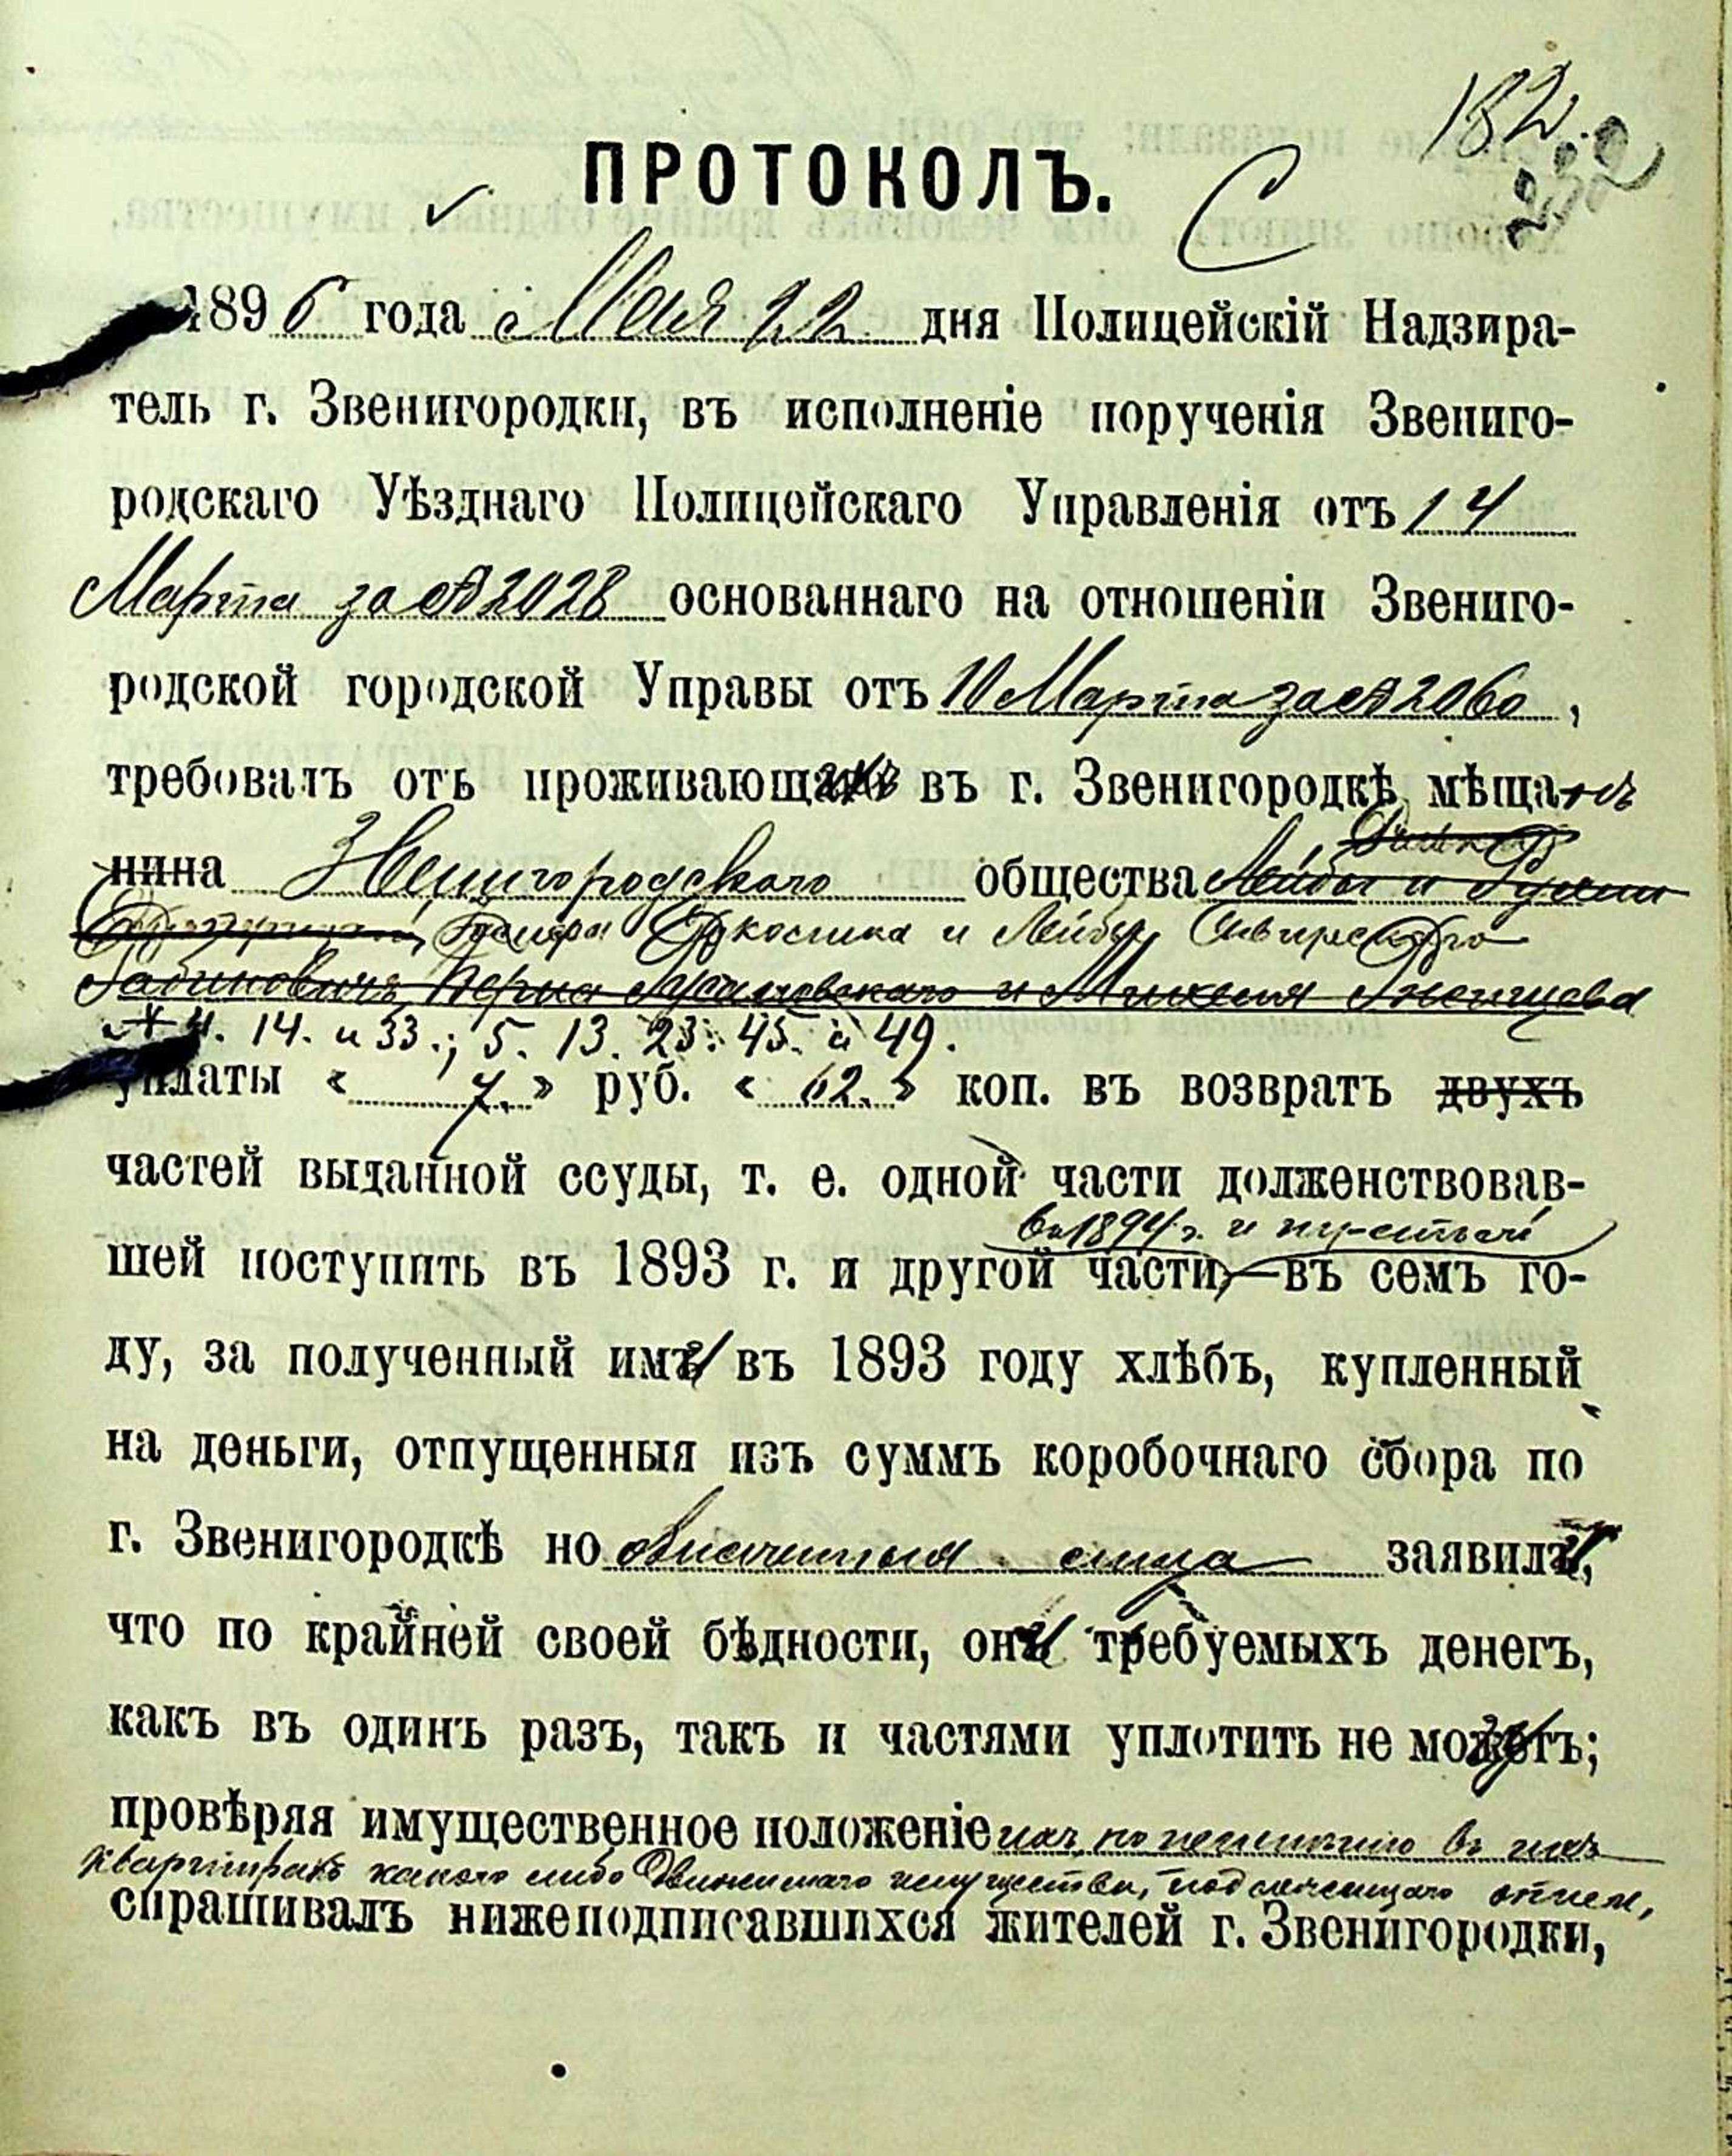 182.
232
ПРОТОКОЛЪ.
1896 года Мая 22 дня Полицейскій Надзира-
тель г. Звенигородки, въ исполненіе порученія Звениго-
родскаго Уѣзднаго Полицейскаго Управленія отъ 14
Марта за № 2028 основаннаго на отношеніи Звениго-
родской городской Управы отъ 10 Марта за № 2060,
требовалъ отъ проживающихъ въ г. Звенигородкѣ мѣщанъ
нина Звенигородскаго общества Лейбы и
и Лейбы
Рабиновича, и
4. 14. и 33.; 5. 13. 23. 45. и 49.
уплаты « 7. » руб. « 62. » коп. въ возвратъ двухъ
частей выданной ссуды, т. е. одной части долженствовав-
въ 1894 г. и третьей
шей поступить въ 1893 г. и другой части, въ семъ го-
ду, за полученный ими въ 1893 году хлѣбъ, купленный
на деньги, отпущенныя изъ суммъ коробочнаго сбора по
г. Звенигородкѣ но означенныя лица заявили,
что по крайней своей бѣдности, они требуемыхъ денегъ,
какъ въ одинъ разъ, такъ и частями уплотить не могутъ;
провѣряя имущественное положеніе ихъ, по неимѣнію въ ихъ
квартирахъ какого либо движимаго имущества, подлежащаго описи,
спрашивалъ нижеподписавшихся жителей г. Звенигородки,